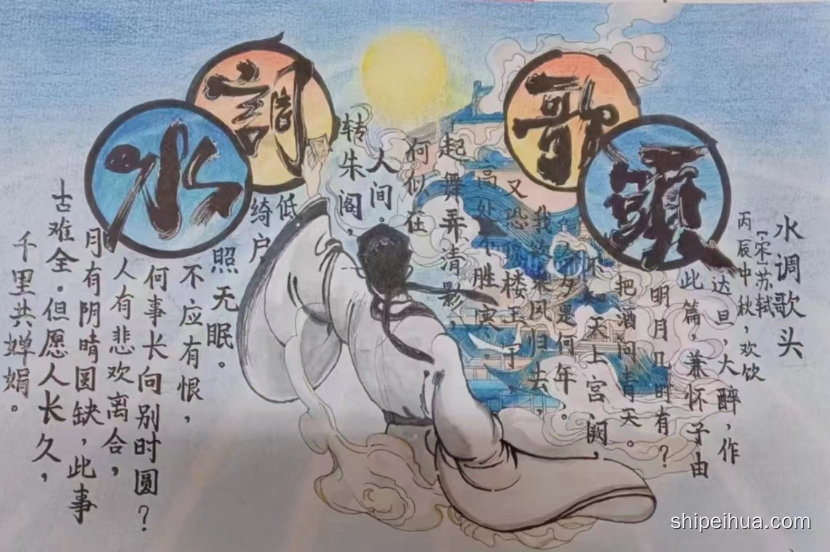 水調歌頭
水调歌头
[宋]苏轼
丙辰中秋，欢饮
达旦，大醉，作
此篇，兼怀子由
明月几时有？
把酒问青天。
不知天上宫阙，
今夕是何年。
我欲乘风归去，
又恐琼楼玉宇，
高处不胜寒
起舞弄清影，
何似在
人间。
转朱阁
低
绮户
照无眠。
不应有恨，
何事长向别时圆？
人有悲欢离合，
月有阴晴圆缺，此事
古难全。但愿人长久，
千里共婵娟。
shipeihua.com